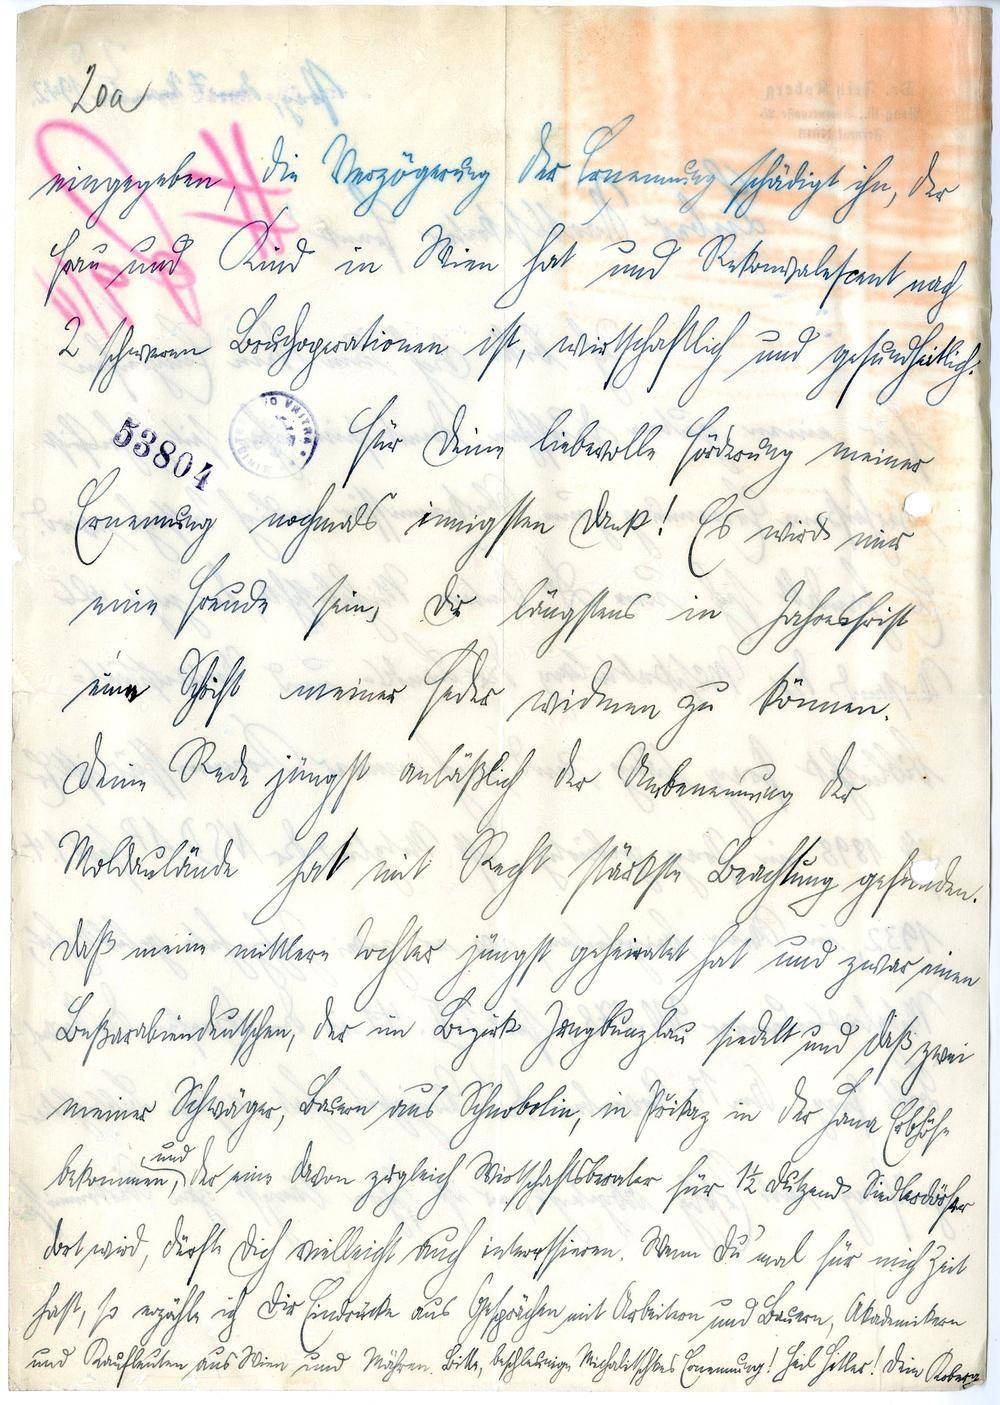 20a
eingegeben, die Verzögerung der Ernennung schädigt ihn, der
Frau und Kind in Wien hat und Rekonvalescent nach
2 schweren Bruchoperationen ist, wirtschaftlich und gesundheitlich.
53804
Für Deine liebevolle Förderung meiner
Ernennung nochmals innigsten Dank! Es wird mir
eine Freude sein, Dir längstens in Jahresfrist
eine Schrift meiner Feder widmen zu können.
Deine Rede jüngst anläßlich der Umbenennung der
Moldaulände hat mit Recht stärkste Beachtung gefunden.
Daß meine mittlere Tochter jüngst geheiratet hat und zwar einen
Beßarabiendeutschen, der im Bezirk Jungbunzlau siedelt und daß zwei
meiner Schwäger, Bauern aus Schnobolin, in Prikaz in der Hana Erbhöfe
bekommen, und der eine davon zugleich Wirtschaftsberater für 1½ Dutzend Siedlerdörfer
dort wird, dürfte Dich vielleicht auch interessieren. Wenn Du mal für mich Zeit
hast, so erzähle ich Dir Eindrücke aus Gesprächen mit Arbeitern und Bauern, Akademikern
und Kaufleuten aus Wien und Mähren. Bitte, beschleunige Michalitschkes Ernennung! Heil Hitler! Dein Koberg